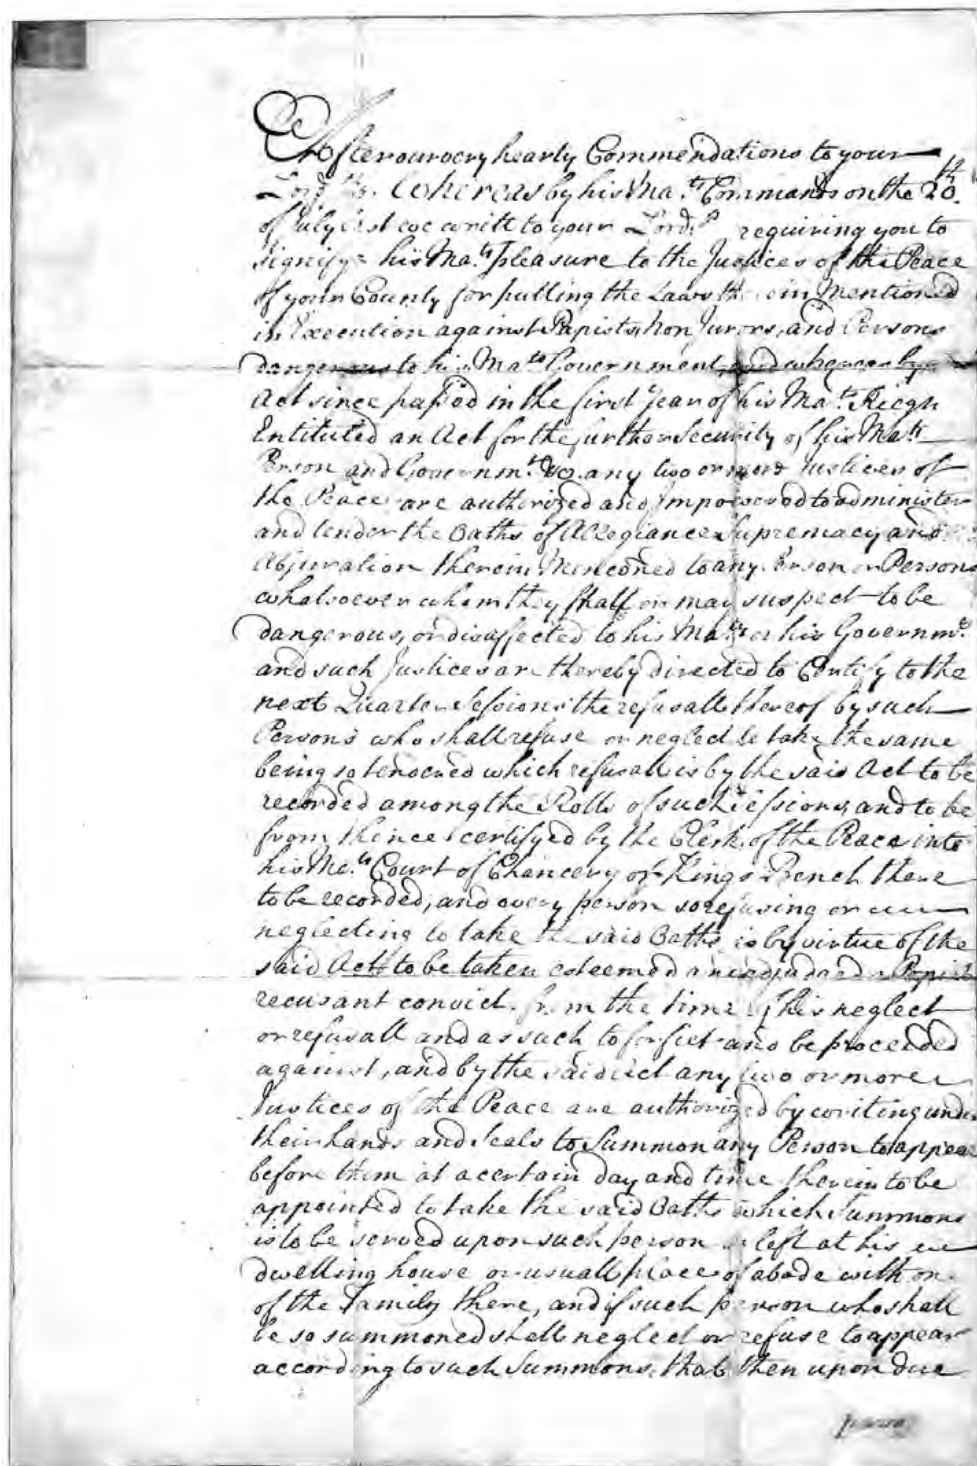 After our very hearty Commendations to your
Lordp. Whereas by his Ma.ts Commands on the 20.th
of July last wee writt to your Lord.p requiring you to
signifye his Ma.ts pleasure to the Justices of the Peace
of your County for putting the Laws therein Mentioned
in Execution against Papists, Non Jurors, and Persons
dangerous to his Ma.ts Government, and whereas by
Act since passed in the first year of his Ma.ts Reign
Entituled an Act for the further Security of his Ma.ts
Person and Governm.t &c. any two or more Justices of
the Peace are authorized and Impowered to administer
and tender the Oaths of Allegiance Supremacy and
Abjuration therein Menconed to any Person or Persons
whatsoever whom they shall or may suspect to be
dangerous, or disaffected to his Ma.tie or his Governm.t
and such Justices are thereby directed to Certify to the
next Quarter Sessions the refusall thereof by such
Persons who shall refuse or neglect to take the same
being so tendered which refusall is by the said Act to be
recorded among the Rolls of such Sessions, and to be
from thence certifyed by the Clerk of the Peace into
his Ma.ts Court of Chancery or Kings Bench there
to be recorded, and every person so refusing or
neglecting to take the said Oaths, is by virtue of the
said Act to be taken esteemed and adjudged a Popish
recusant convict from the time of his neglect
or refusall and as such to forfiet and be proceeded
against, and by the said Act any two or more
Justices of the Peace are authorized by writing under
their hands and Seals to Summon any Person to appear
before them at a certain day and time therein to be
appointed to take the said Oaths which Summons
is to be served upon such person or left at his
dwelling house or usuall place of abode with one
of the Family there, and if such person who shall
be so summoned shall neglect or refuse to appear
according to such Summons, that then upon due